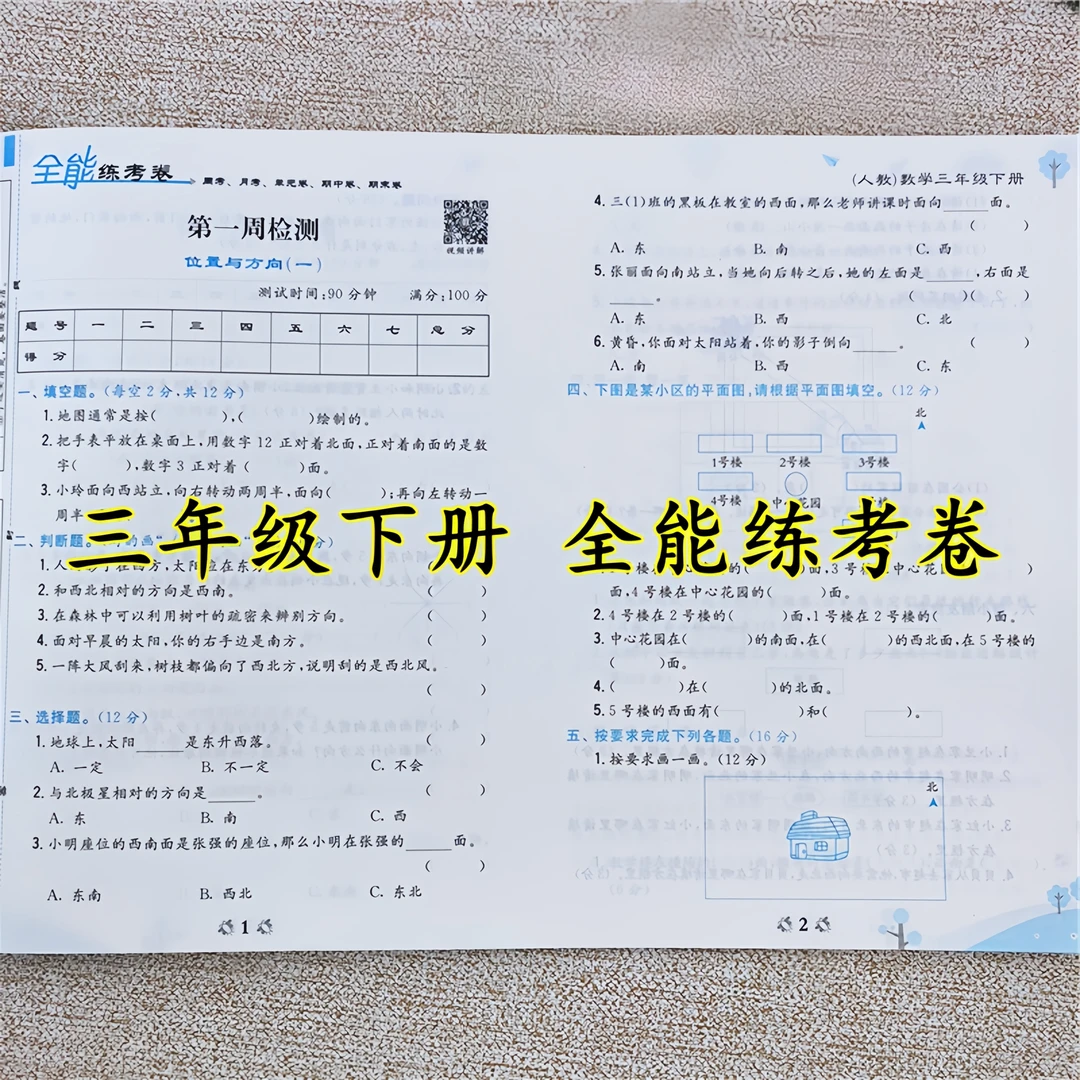 全能练考卷
周考、月考、单元卷、期中卷、期末卷
第一周检测
视频讲解
位置与方向(一)
测试时间:90分钟 满分:100分
题号 一 二 三 四 五 六 七 总分
得分
一、填空题。(每空2分,共12分)
1.地图通常是按( ),( )绘制的。
2.把手表平放在桌面上,用数字12正对着北面,正对着南面的是数
字( ),数字3正对着( )面。
3.小玲面向西站立,向右转动两周半,面向( );再向左转动一
周半
三年级下册 全能练考卷
二、判断题。
2.和西北相对的方向是西南。 ( )
3.在森林中可以利用树叶的疏密来辨别方向。 ( )
4.面对早晨的太阳,你的右手边是南方。 ( )
5.一阵大风刮来,树枝都偏向了西北方,说明刮的是西北风。
( )
三、选择题。(12分)
1.地球上,太阳____是东升西落。 ( )
A.一定 B.不一定 C.不会
2.与北极星相对的方向是____。 ( )
A.东 B.南 C.西
3.小明座位的西南面是张强的座位,那么小明在张强的____面。
( )
A.东南 B.西北 C.东北
1
(人教)数学三年级下册
4.三(1)班的黑板在教室的西面,那么老师讲课时面向____面。
( )
A.东 B.南 C.西
5.张丽面向南站立,当她向后转之后,她的左面是____,右面是
____。 ( )( )
A.东 B.西 C.北
6.黄昏,你面对太阳站着,你的影子倒向____。 ( )
A.南 B.西 C.东
四、下图是某小区的平面图,请根据平面图填空。(12分)
北
1号楼 2号楼 3号楼
4号楼 中心花园
面,4号楼在中心花园的( )面。
2.4号楼在2号楼的( )面,1号楼在2号楼的( )面。
3.中心花园在( )的南面,在( )的西北面,在5号楼的
( )面。
4.( )在( )的北面。
5.5号楼的西面有( )和( )。
五、按要求完成下列各题。(16分)
1.按要求画一画。(12分)
北
2